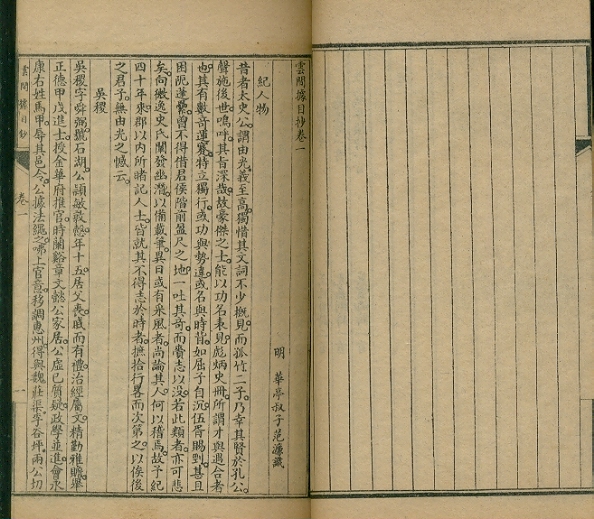 雲間據目抄卷一
明　華亭叔子范濂識
紀人物
昔者太史公謂由光義至高獨惜其文詞不少概見而孤竹二子乃幸其賢於孔公
聲施後世嗚呼其旨深哉故豪傑之士能以功名表見彪炳史冊所謂才與遇合者
也其有數奇運蹇特立獨行或功與勢違或名與時背如屈子自沉伍胥賜劍甚且
困阨蓬藋曾不得借君侯階前盈尺之地一吐其奇而賫志以沒若此類者亦可悲
矣向微逸史氏闡發幽潛以備載筆異日或有采風者尚論其人何以稽焉故予紀
四十年來郡以內所睹記人士皆就其不得志於時者摭拾行畧而次第之以俟後
之君子無由光之憾云
吳稷
吳稷字舜弼號石湖公穎敏嚴慤年十五居父喪戚而有禮治經屬文精勤雅贍舉
正德甲戌進士授金華府推官時蘭谿章文懿公家居公虛已質疑政學並進會永
康右姓馬甲辱其邑令公據法繩之忤上官意移調惠州得與魏莊渠李谷坪兩公切
雲間據目鈔
卷一
一